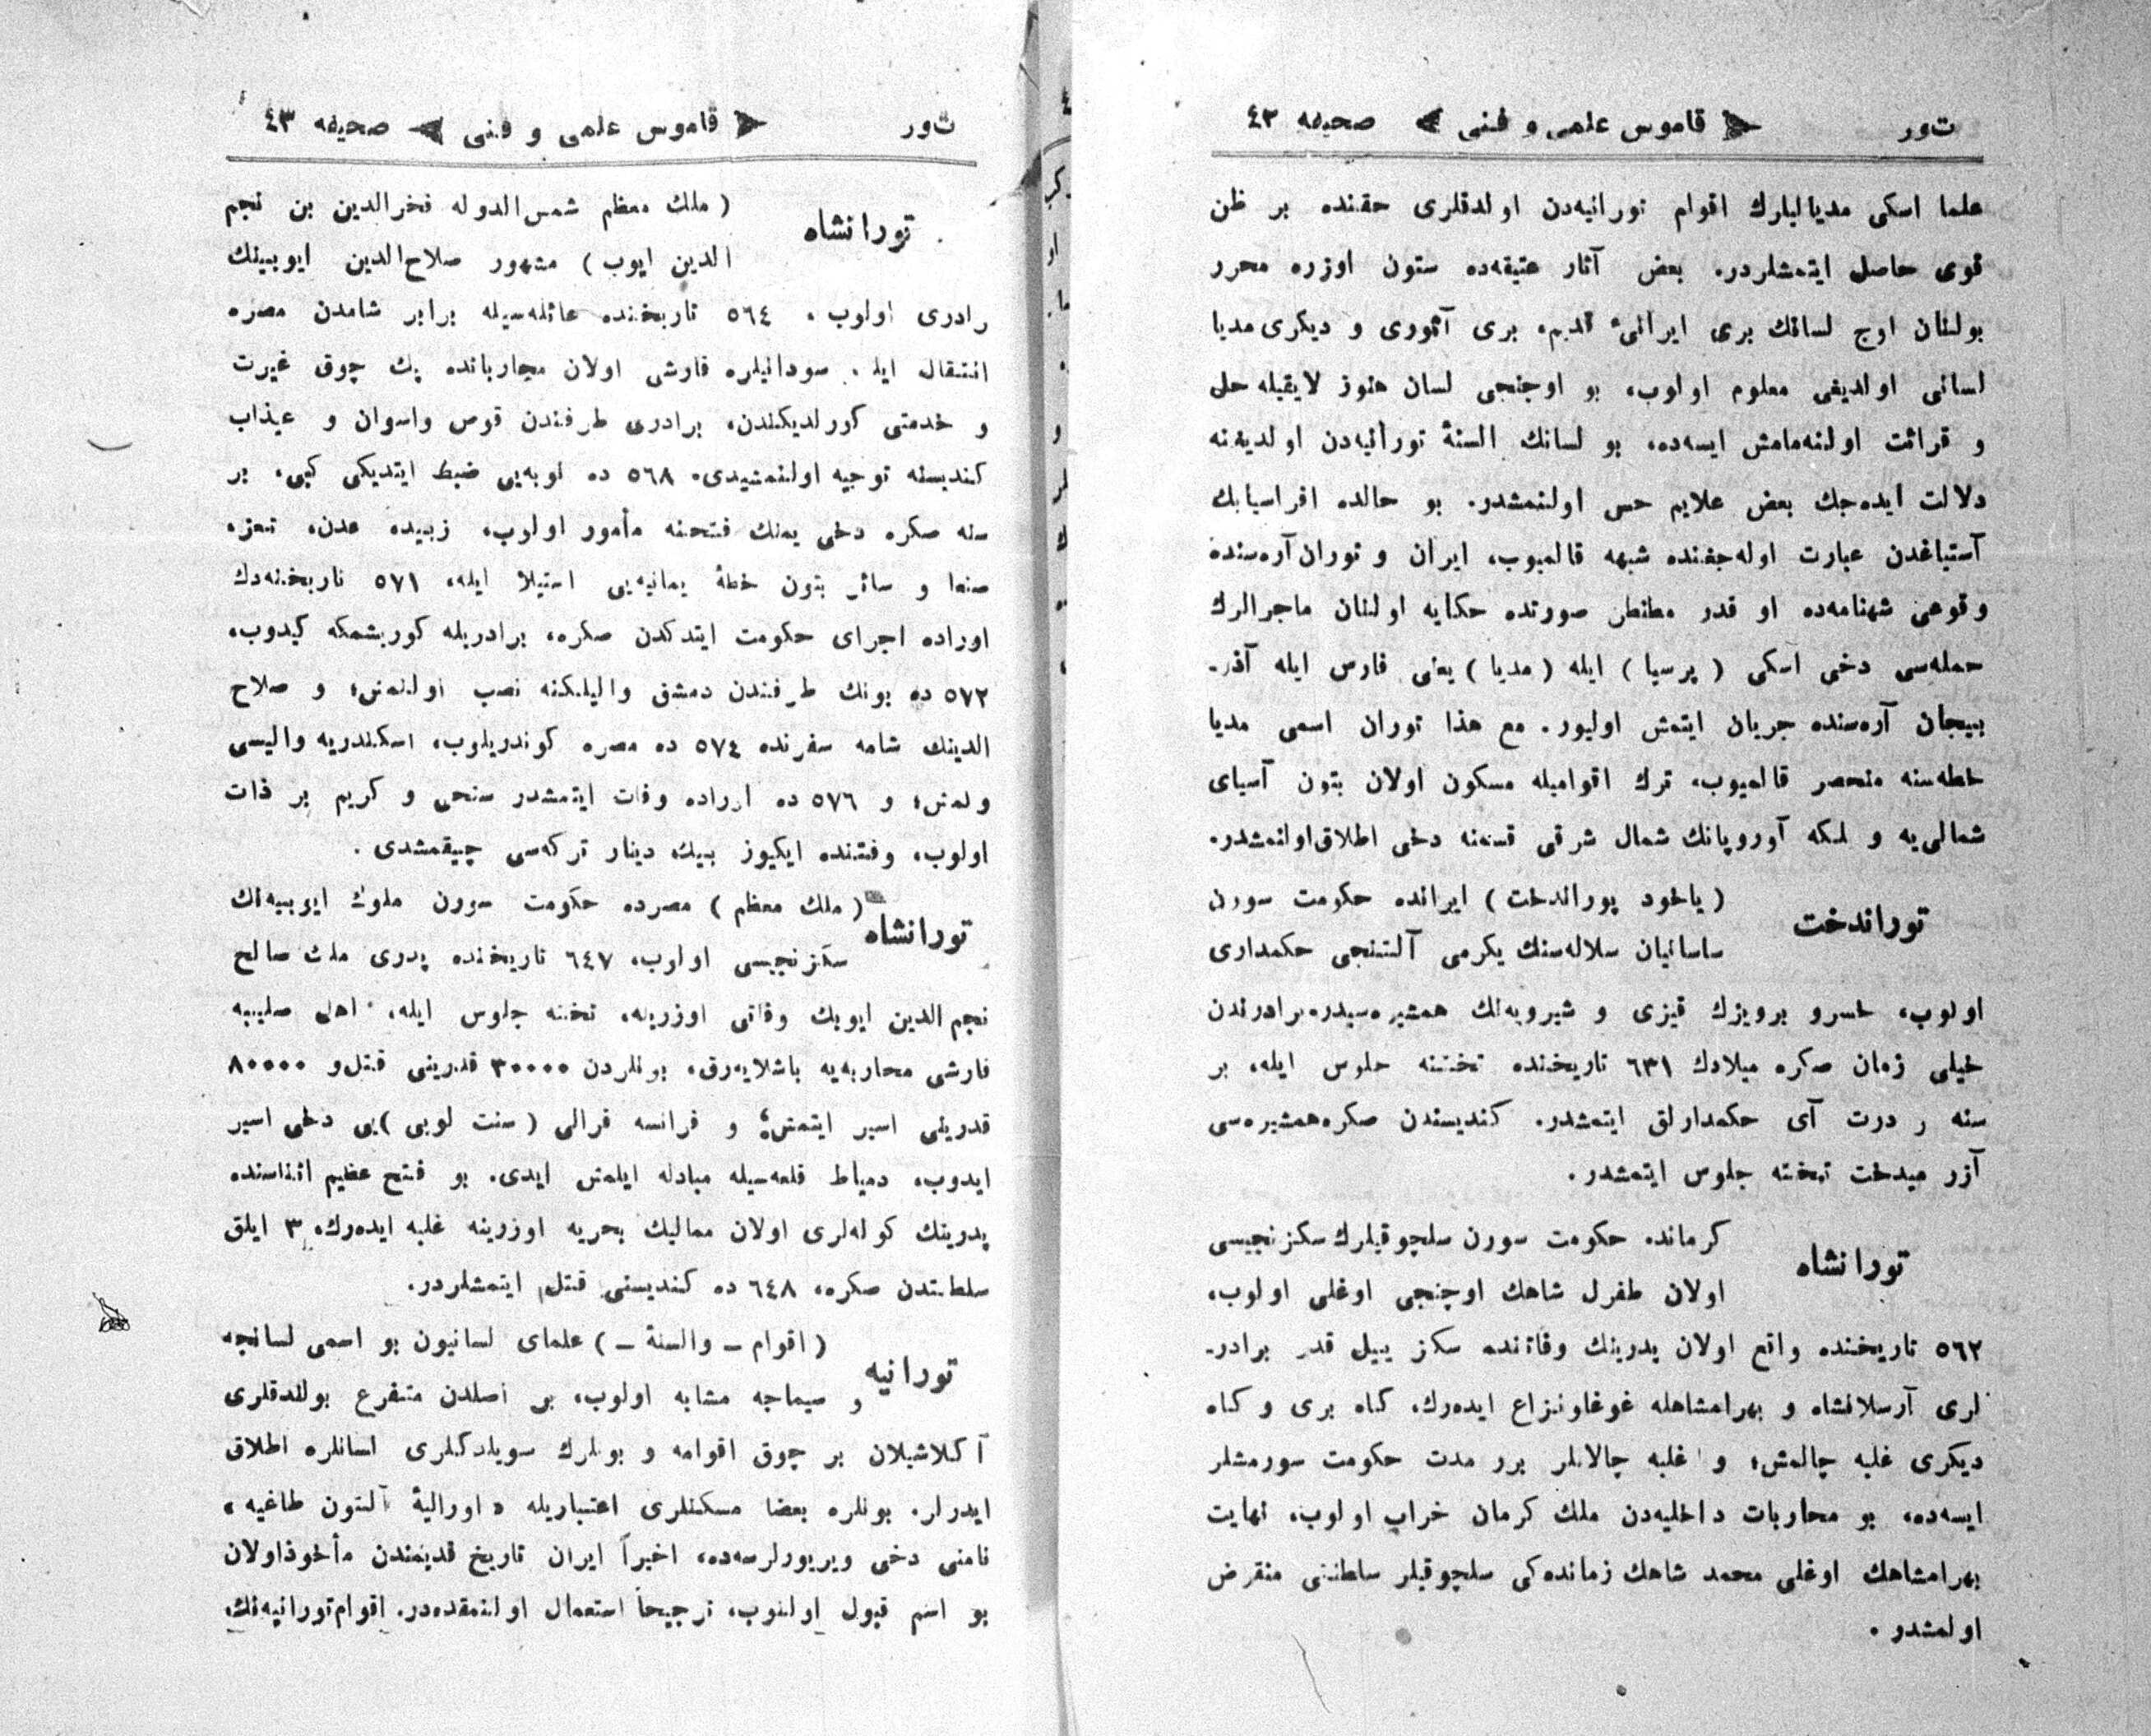 تور ﴿ قاموس علمی و فنی ﴾ صحیفه ٤٢
علما اسکی مدیالیلرك اقوام تورانیه‌دن اولدقلری حقنده بر ظن
قوی حاصل ایتمشلردر. بعض آثار عتیقه‌ده ستون اوزره محرر
بولنان اوچ لسانك بری ایرانیٔ قدیم، بری آثوری و دیکری مدیا
لسانی اولدیغی معلوم اولوب، بو اوچنجی لسان هنوز لایقیله حل
و قرائت اولنه‌مامش ایسه‌ده، بو لسانك السنهٔ تورانیه‌دن اولدیغنه
دلالت ایده‌جك بعض علایم حس اولنمشدر. بو حالده افراسیابك
آستیاغدن عبارت اوله‌جغنده شبهه قالمیوب، ایران و توران آره‌سنده
وقوعی شهنامه‌ده او قدر مطنطن صورتده حکایه اولنان ماجرالرك
جمله‌سی دخی اسکی ( پرسیا ) ایله ( مدیا ) یعنی فارس ایله آذر-
بیجان آره‌سنده جریان ایتمش اولیور. مع هذا توران اسمی مدیا
خطه‌سنه منحصر قالمیوب، ترك اقوامیله مسکون اولان بتون آسیای
شمالی‌یه و بلکه آوروپانك شمال شرقی قسمنه دخی اطلاق اولنمشدر.
توراندخت ( یاخود پوراندخت ) ایرانده حکومت سورن
ساسانیان سلاله‌سنك یکرمی آلتنجی حکمداری
اولوب، خسرو پرویزك قیزی و شیرویه‌نك همشیره‌سیدر. برادرندن
خیلی زمان صکره میلادك ٦٣١ تاریخنده تختنه جلوس ایله، بر
سنه و درت آی حکمدارلق ایتمشدر. کندیسندن صکره همشیره‌سی
آزر میدخت تخته جلوس ایتمشدر.
تورانشاه کرمانده حکومت سورن سلجوقیلرك سکزنجیسی
اولان طغرل شاهك اوچنجی اوغلی اولوب،
٥٦٢ تاریخنده واقع اولان پدرینك وفاتنده سکز ییل قدر برادر-
لری آرسلانشاه و بهرامشاهله غوغا و نزاع ایده‌رك، کاه بری و کاه
دیکری غلبه چالمش؛ و غلبه چالانلر برر مدت حکومت سورمشلر
ایسه‌ده، بو محاربات داخلیه‌دن ملك کرمان خراب اولوب، نهایت
بهرامشاهك اوغلی محمد شاهك زمانده‌کی سلجوقیلر سلطنتی منقرض
اولمشدر.
تور ﴿ قاموس علمی و فنی ﴾ صحیفه ٤٣
تورانشاه ( ملك معظم شمس‌الدوله فخرالدین بن نجم
الدین ایوب ) مشهور صلاح‌الدین ایوبینك
رادری اولوب، ٥٦٤ تاریخنده عائله‌سیله برابر شامدن مصره
انتقال ایله. سودانیلره قارشی اولان محارباتده پك چوق غیرت
و خدمتی کورلدیکندن، برادری طرفندن قوص واسوان و عیذاب
کندیسنه توجیه اولنمشیدی. ٥٦٨ ده نوبه‌یی ضبط ایتدیکی کبی، بر
سنه صکره دخی یمنك فتحنه مأمور اولوب، زبیده عدن، تعز،
صنعا و سائر بتون خطهٔ یمانیه‌یی استیلا ایله، ٥٧١ تاریخنه‌دك
اوراده اجرای حکومت ایتدکدن صکره، برادریله کوریشمکه کیدوب،
٥٧٢ ده بونك طرفندن دمشق والیلکنه نصب اولنمش؛ و صلاح
الدینك شامه سفرنده ٥٧٤ ده مصره کوندریلوب، اسکندریه والیسی
ولمش؛ و ٥٧٦ ده اوراده وفات ایتمشدر سخی و کریم بر ذات
اولوب، وفتنده ایکیوز بیك دینار ترکه‌سی چیقمشدی.
تورانشاه ( ملك معظم ) مصرده حکومت سورن ملوك ایوبیه‌نك
سکزنجیسی اولوب، ٦٤٧ تاریخنده پدری ملك صالح
نجم الدین ایوبك وفاتی اوزرینه، تخته جلوس ایله، اهل صلیبه
قارشی محاربه‌یه باشلایه‌رق، بونلردن ٣٠٠٠٠ قدرینی قتل و ٨٠٠٠٠
قدرینی اسیر ایتمش؛ و فرانسه قرالی ( سنت لویی )یی دخی اسیر
ایدوب، دمیاط قلعه‌سیله مبادله ایلمش ایدی. بو فتح عظیم اثناسنده
پدرینك کوله‌لری اولان ممالیك بحریه اوزرینه غلبه ایده‌رك، ٣ ایلق
سلطنتدن صکره، ٦٤٨ ده کندیسنی قتل ایتمشلردر.
تورانیه ( اقوام ـ والسنة ـ ) علمای لسانیون بو اسمی لسانجه
و سیماجه مشابه اولوب، بر اصلدن متفرع بولندقلری
آکلاشیلان بر چوق اقوامه و بونلرك سویلدکلری لسانلره اطلاق
ایدرلر. بونلره بعضا مسکنلری اعتباریله « اورالیهٔ آلتون طاغیه »
نامنی دخی ویریورلرسه‌ده، اخیراً ایران تاریخ قدیمندن مأخوذ اولان
بو اسم قبول اولنوب، ترجیحاً استعمال اولنمقده‌در. اقوام تورانیه‌نك،